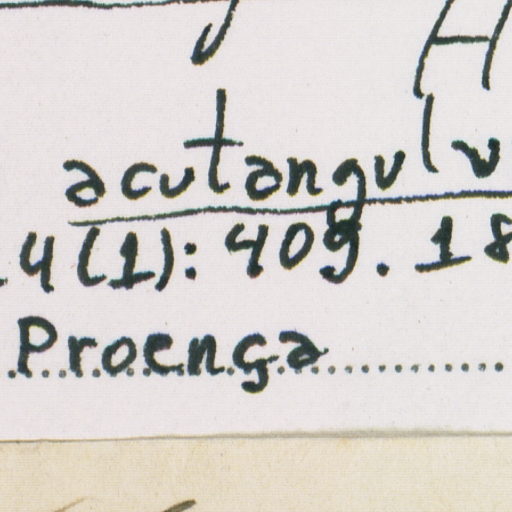 acutangul
4(1): 409. 18
Proença